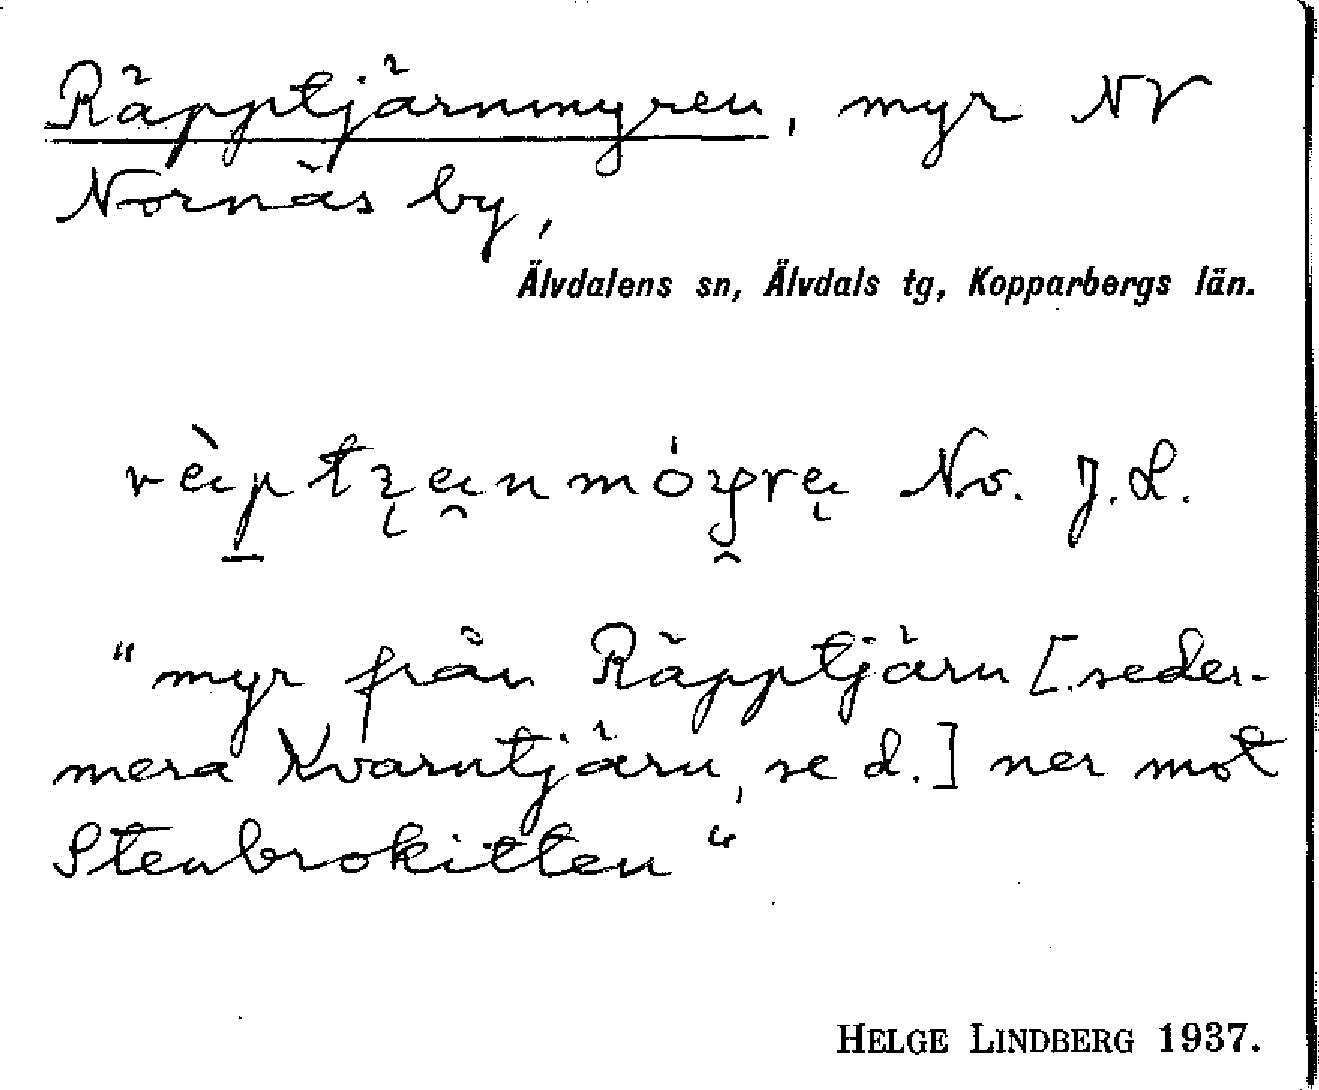 Räpptjärnmyren, myr NV
Nornäs by,
Älvdalens sn, Älvdals tg, Kopparbergs län.
No. J. L.
"myr från Räpptjärn [seder-
mera Kvarntjärn, se d.] ner mot
Stenbrokitten"
HELGE LINDBERG 1937.